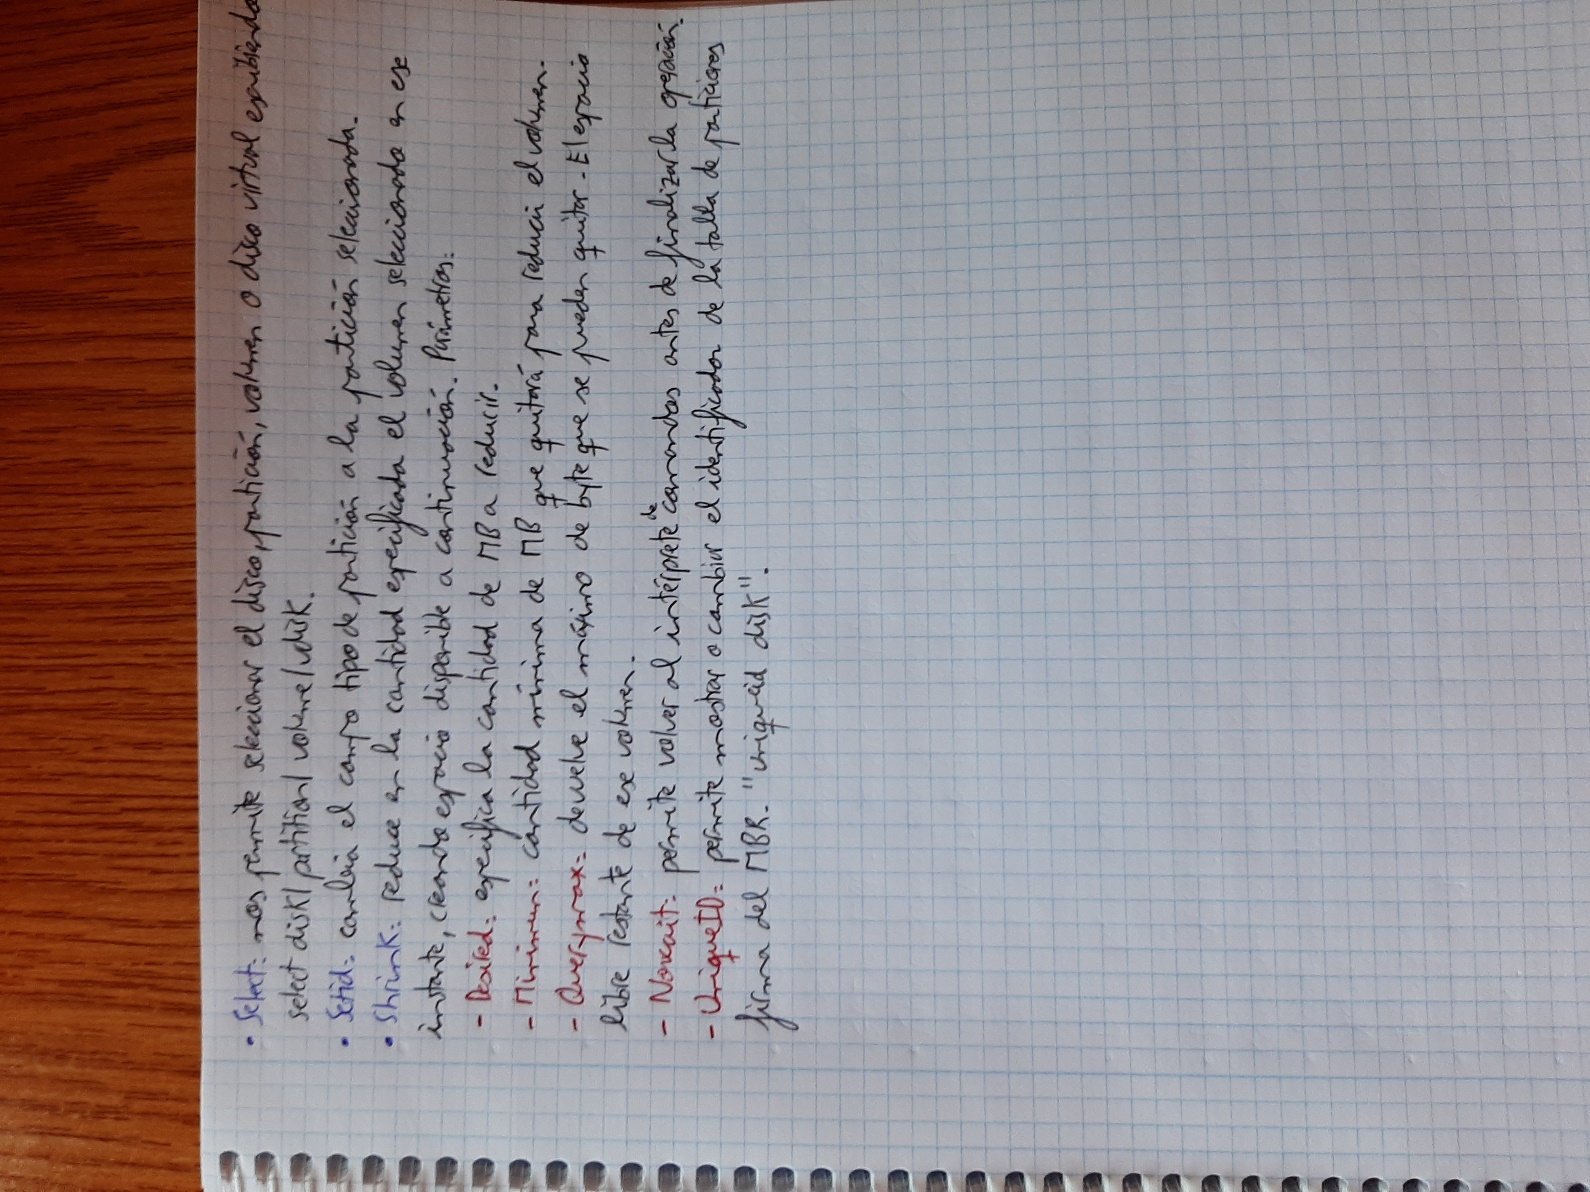 • Select: nos permite seleccionar el disco, partición, volumen o disco virtual escribiendo
select disk/partition/volume/vdisk.
• Setid: cambia el campo tipo de partición a la partición seleccionada.
• Shrink: reduce en la cantidad especificada el volumen seleccionado en ese
instante, creando espacio disponible a continuación. Parámetros:
- Desired: especifica la cantidad de MB a reducir.
- Minimun: cantidad mínima de MB que quitará para reducir el volumen.
- Querymax: devuelve el máximo de byte que se pueden quitar. El espacio
libre restante de ese volumen.
- Nowait: permite volver al intérprete de comandos antes de finalizar la operación.
- UniqueID: permite mostrar o cambiar el identificador de la tabla de particiones
firma del MBR. "uniqueid disk".